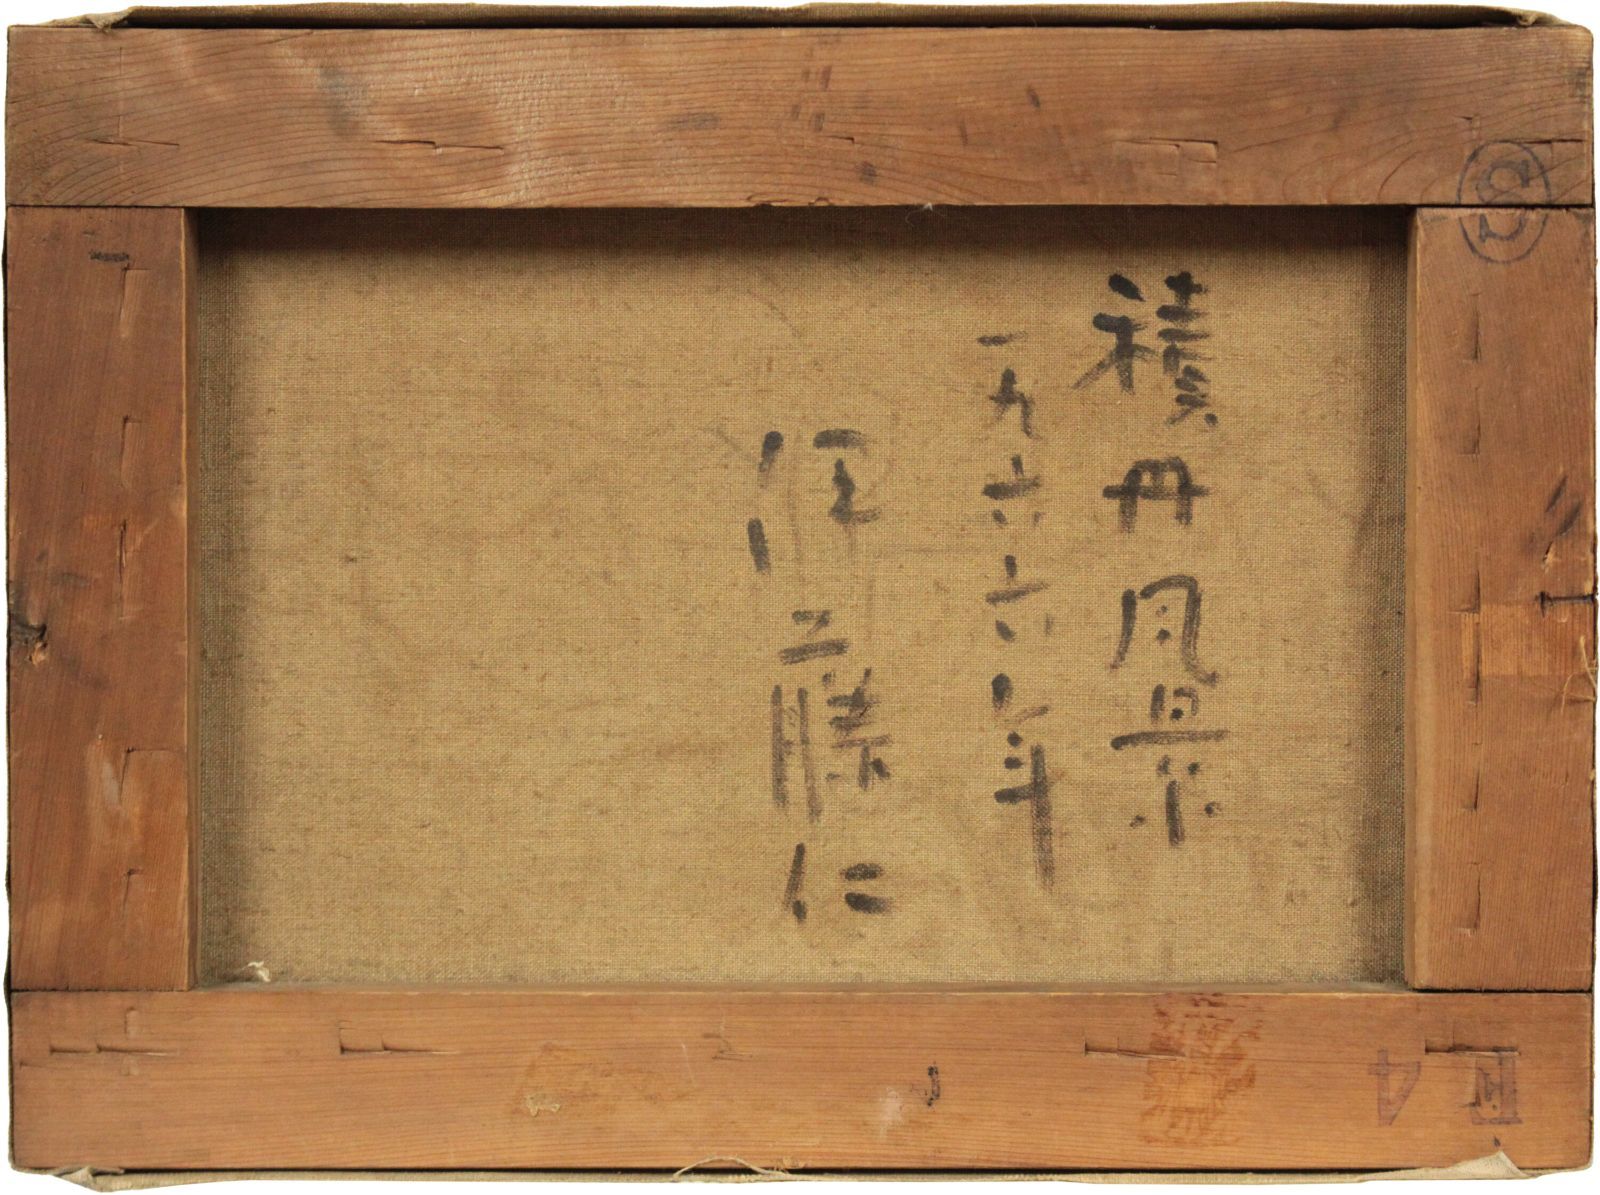 積丹風景
一九六六年
伊藤仁
F
4